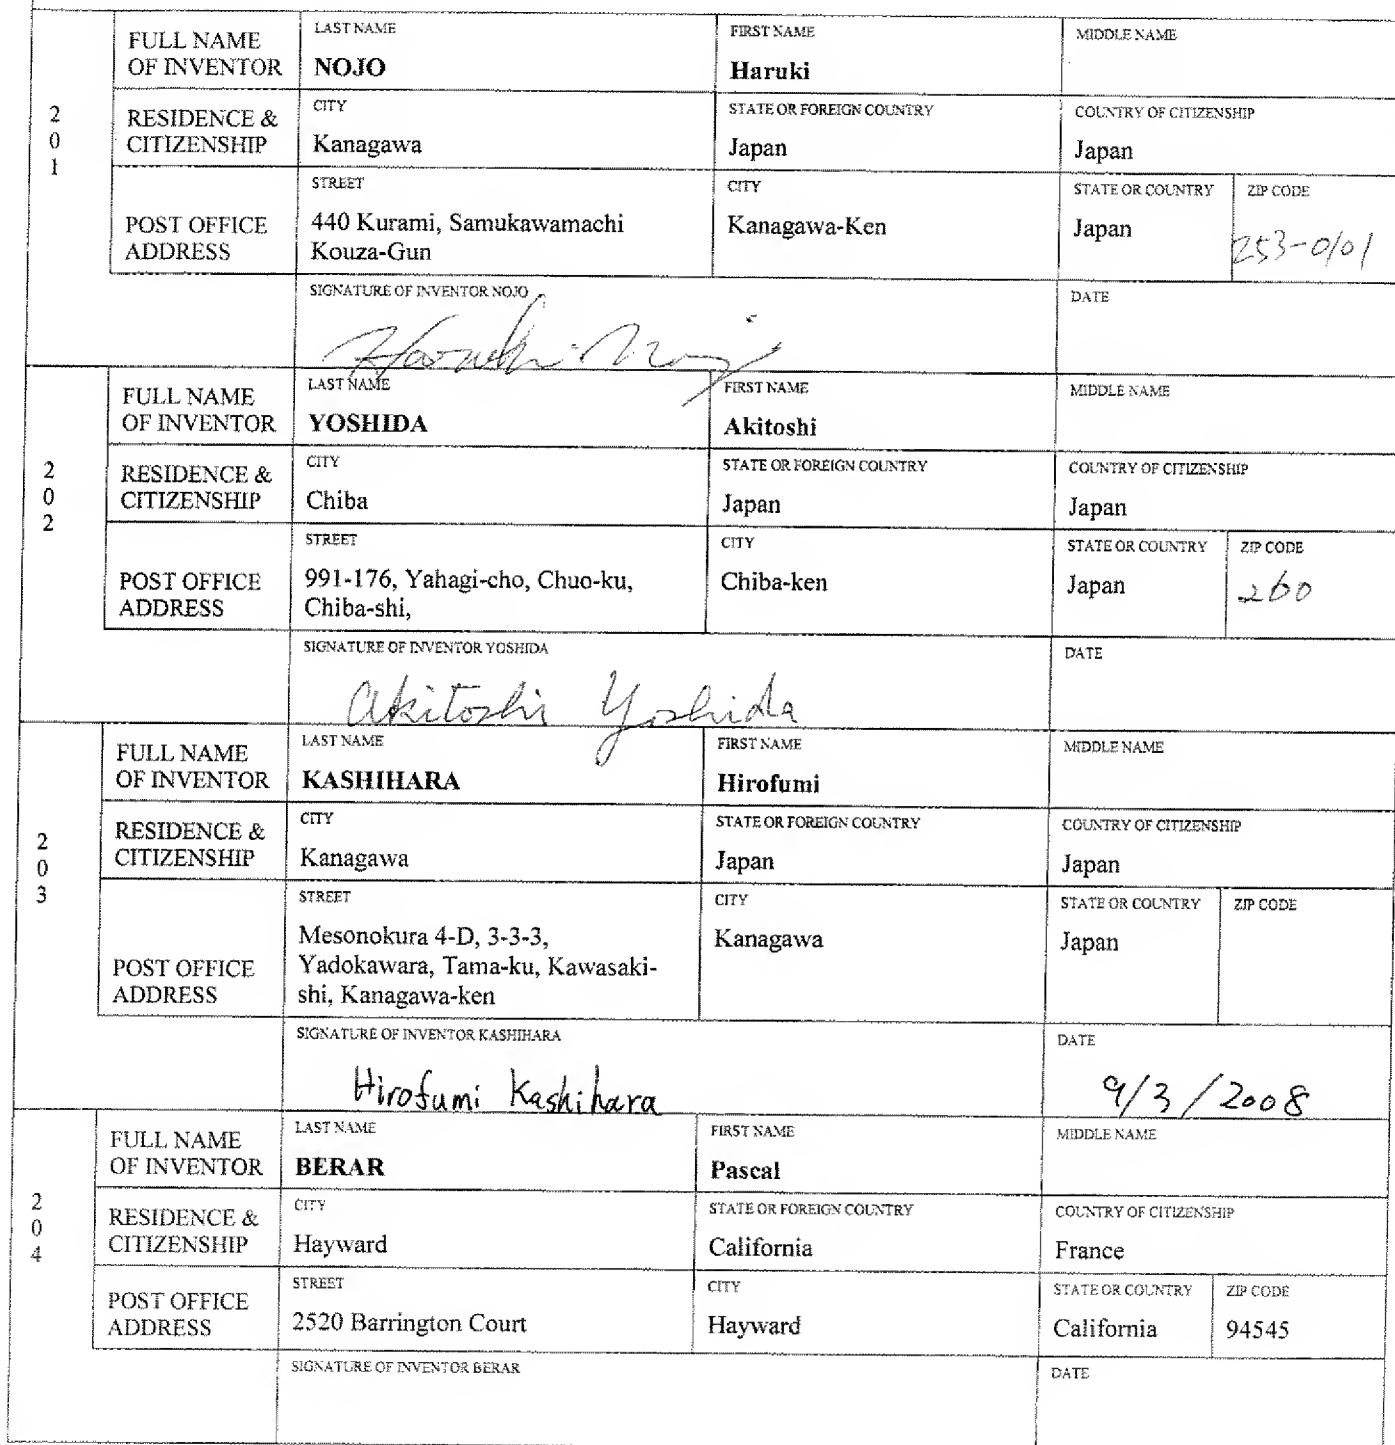 201
FULL NAME OF INVENTOR
LAST NAME
NOJO
FIRST NAME
Haruki
MIDDLE NAME
RESIDENCE & CITIZENSHIP
CITY
Kanagawa
STATE OR FOREIGN COUNTRY
Japan
COUNTRY OF CITIZENSHIP
Japan
POST OFFICE ADDRESS
STREET
440 Kurami, Samukawamachi
Kouza-Gun
CITY
Kanagawa-Ken
STATE OR COUNTRY
Japan
ZIP CODE
253-0101
SIGNATURE OF INVENTOR NOJO
Haruki Nojo
DATE
202
FULL NAME OF INVENTOR
LAST NAME
YOSHIDA
FIRST NAME
Akitoshi
MIDDLE NAME
RESIDENCE & CITIZENSHIP
CITY
Chiba
STATE OR FOREIGN COUNTRY
Japan
COUNTRY OF CITIZENSHIP
Japan
POST OFFICE ADDRESS
STREET
991-176, Yahagi-cho, Chuo-ku,
Chiba-shi,
CITY
Chiba-ken
STATE OR COUNTRY
Japan
ZIP CODE
260
SIGNATURE OF INVENTOR YOSHIDA
Akitoshi Yoshida
DATE
203
FULL NAME OF INVENTOR
LAST NAME
KASHIHARA
FIRST NAME
Hirofumi
MIDDLE NAME
RESIDENCE & CITIZENSHIP
CITY
Kanagawa
STATE OR FOREIGN COUNTRY
Japan
COUNTRY OF CITIZENSHIP
Japan
POST OFFICE ADDRESS
STREET
Mesonokura 4-D, 3-3-3,
Yadokawara, Tama-ku, Kawasaki-
shi, Kanagawa-ken
CITY
Kanagawa
STATE OR COUNTRY
Japan
ZIP CODE
SIGNATURE OF INVENTOR KASHIHARA
Hirofumi Kashihara
DATE
9/3/2008
204
FULL NAME OF INVENTOR
LAST NAME
BERAR
FIRST NAME
Pascal
MIDDLE NAME
RESIDENCE & CITIZENSHIP
CITY
Hayward
STATE OR FOREIGN COUNTRY
California
COUNTRY OF CITIZENSHIP
France
POST OFFICE ADDRESS
STREET
2520 Barrington Court
CITY
Hayward
STATE OR COUNTRY
California
ZIP CODE
94545
SIGNATURE OF INVENTOR BERAR
DATE